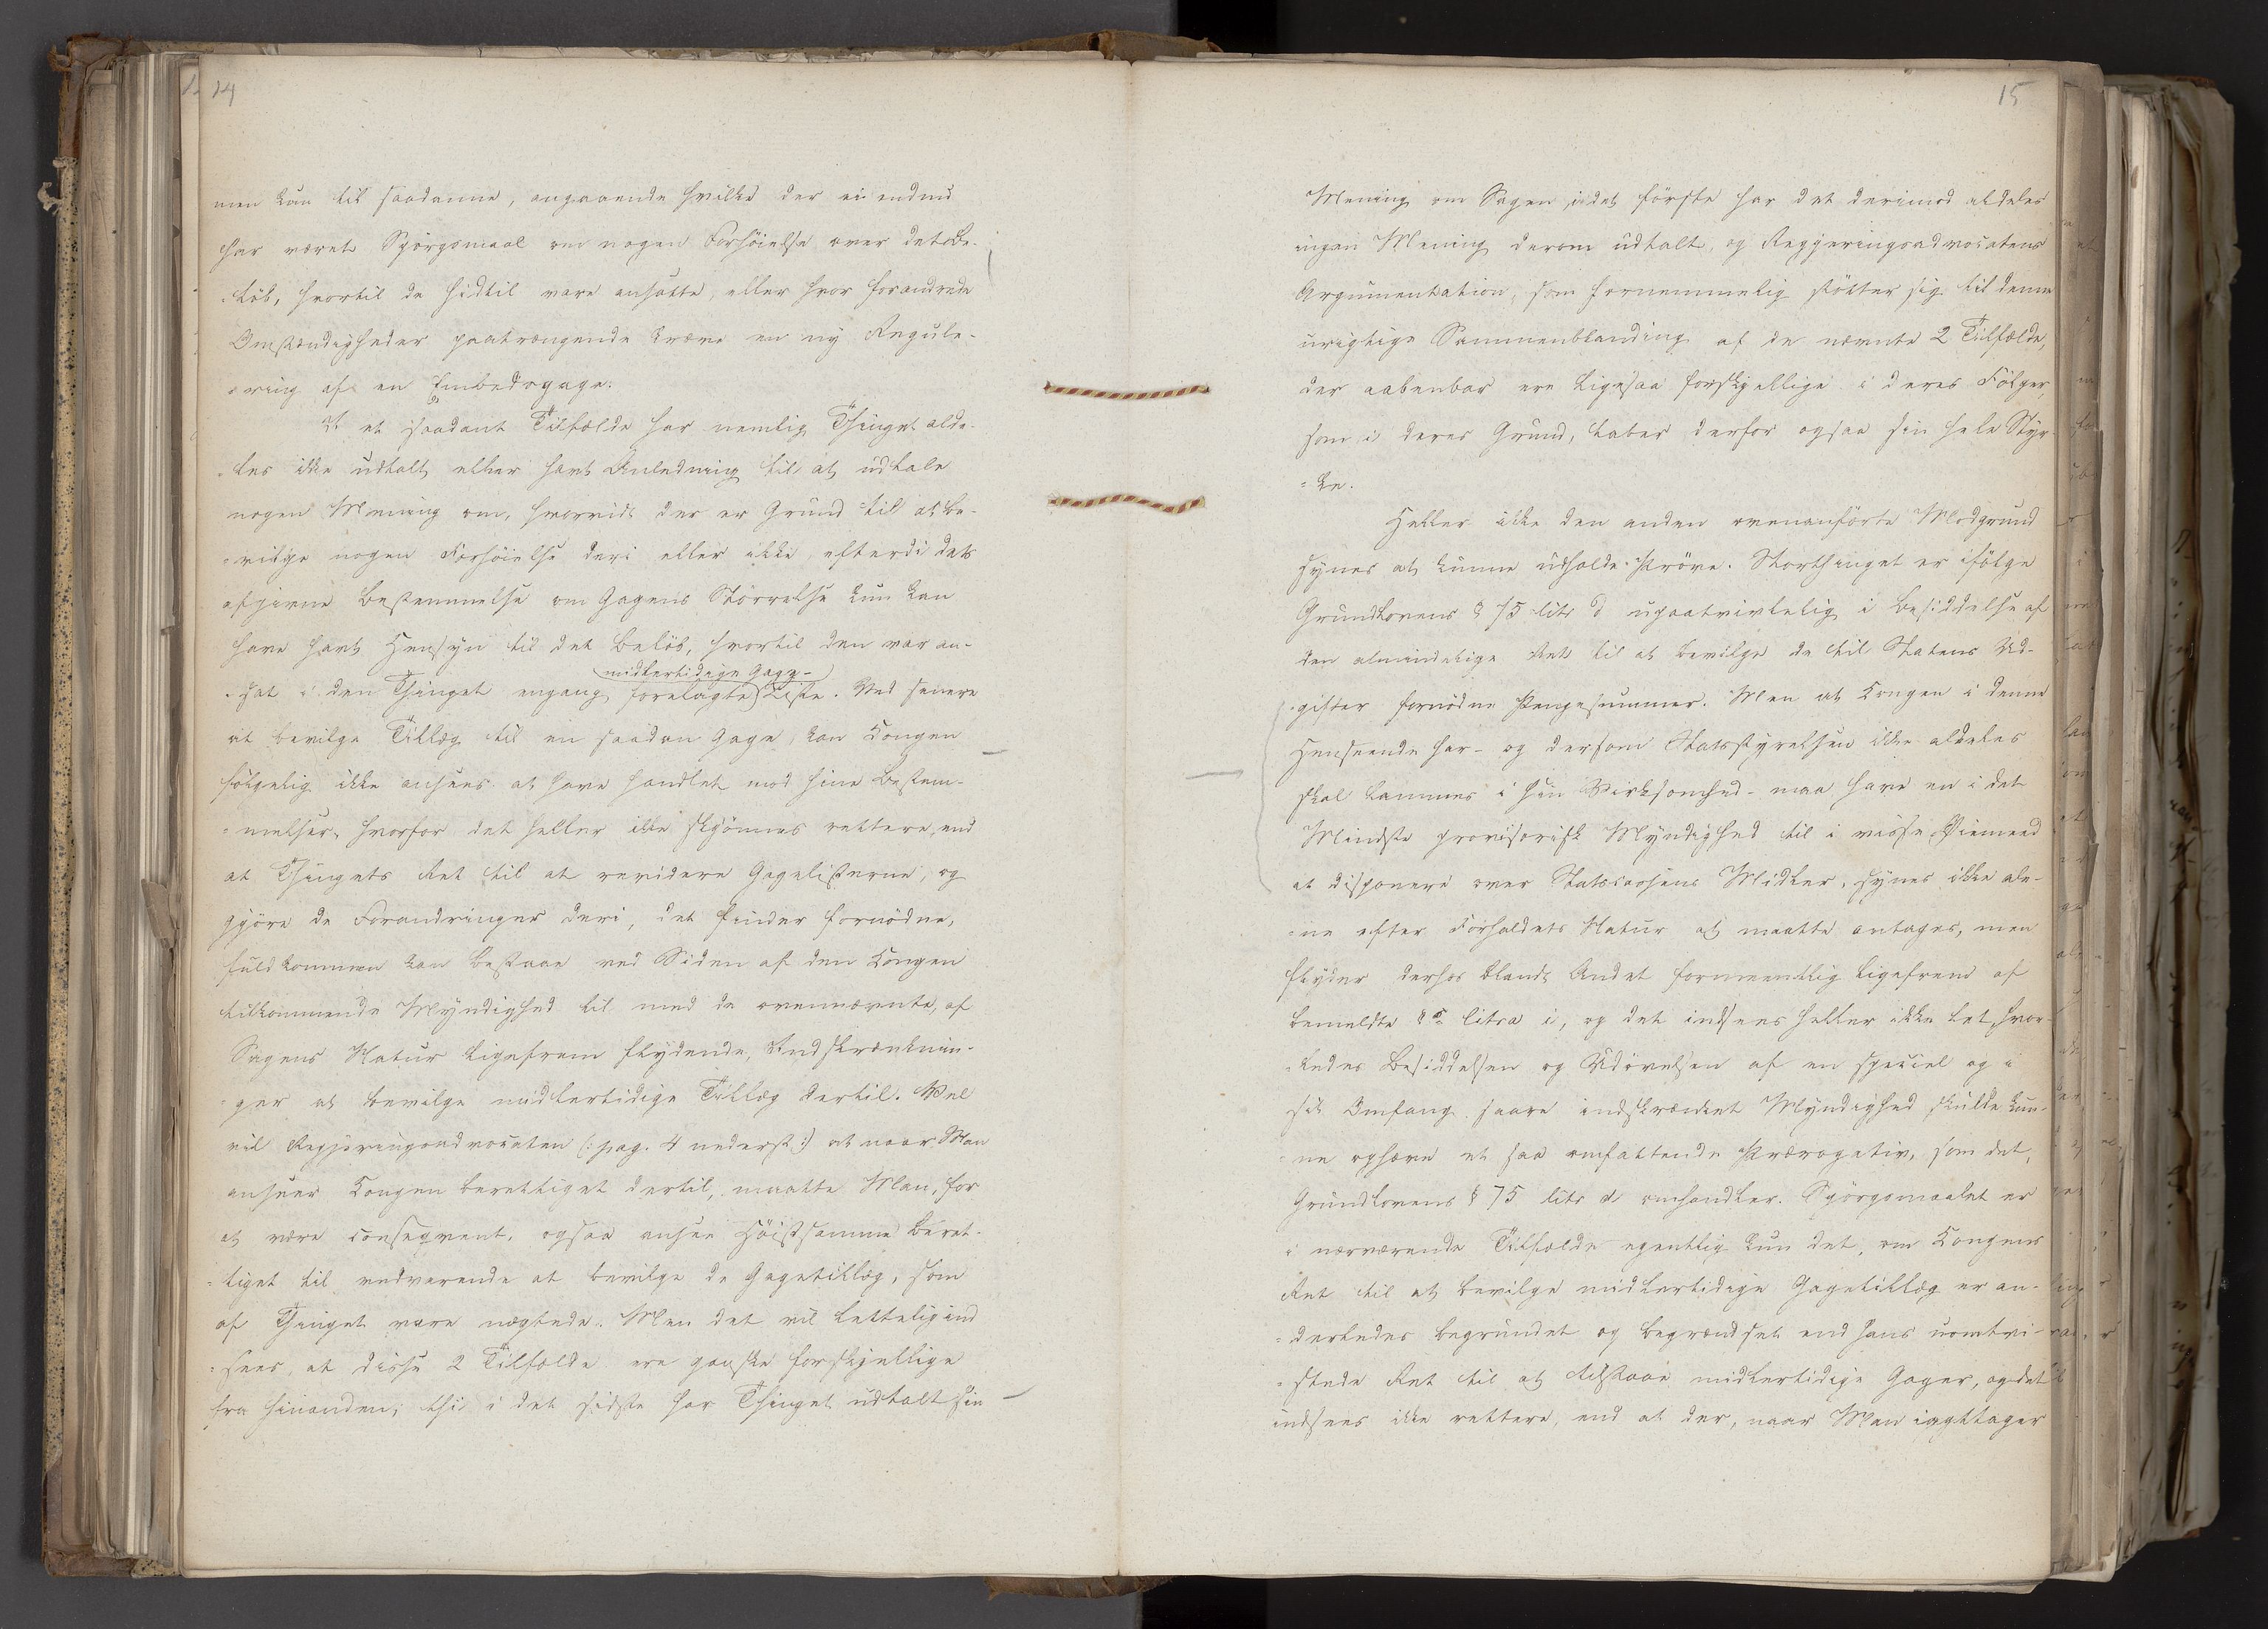 14
men kun til saadanne, angaaende hvilke der ei endnu
har været Spörgsmaal om nogen Forhöielse over det Be-
=löb, hvortil de hidtil vare ansatte, eller hvor forandrede
Omstændigheder paatrængende kræve en ny Regule-
=ring af en Embedsgage.
I et saadant Tilfælde har nemlig Thinget alde-
=les ikke udtalt eller havt Anledning til at udtale
nogen Mening om, hvorvidt der er Grund til at be-
=vilge nogen Forhöielse deri eller ikke, efterdi dets
afgivne Bestemmelse om Gagens Störrelse kun kan
have havt Hensyn til det Belöb, hvortil den var an-
midlertidige Gage-
=sat i den Thinget engang forelagte Liste. Ved senere
at bevilge Tillæg til en saadan Gage, kan Kongen
fölgelig ikke ansees at have handlet mod hine Bestem-
=melser, hvorfor det heller ikke skjönnes rettere, end
at Thingets Ret til at revidere Gagelisterne, og
gjöre de Forandringer deri, det finder fornödne,
fuldkommen kan bestaae ved Siden af den Kongen
tilkommende Myndighed til med de ovennævnte, af
Sagens Natur ligefrem flydende, Indskrænknin-
=ger at bevilge midlertidige Tillæg dertil. Vel
vil Regjeringsadvocaten (: pag. 4 nederst :) at naar Man
anseer Kongen berettiget dertil, maatte Man, for
at være conseqvent, ogsaa ansee Höistsamme beret-
=tiget til vedvarende at bevilge de Gagetillæg, som
af Thinget vare nægtede. Men det vil letteligind
=sees, at disse 2 Tilfælde ere ganske forskjellige
fra hinanden; thi i det sidste har Thinget udtalt sin
15
Mening om Sagen, i det förste har det derimod aldeles
ingen Mening derom udtalt, og Regjeringsadvocatens
Argumentation, som fornemmelig stötter sig til denne
urigtige Sammenblanding af de nævnte 2 Tilfælde,
der aabenbar ere ligesaa forskjellige i deres Fölger,
som i deres Grund, taber derfor ogsaa sin hele Styr-
=ke.
Heller ikke den anden ovenanförte Modgrund
synes at kunne udholde Pröve. Storthinget er ifölge
Grundlovens § 75 litr d upaatvivlelig i Besiddelse af
den almindelige Ret til at bevilge de til Statens Ud-
=gifter fornödne Pengesummer. Men at Kongen i denne
Henseende har - og dersom Statsstyrelsen ikke aldeles
skal lammes i sin Virksomhed - maa have en i det
Mindste provisorisk Myndighed til i visse Öiemeed
at disponere over Statscassens Midler, synes ikke ale-
=ne efter Forholdets Natur at maatte antages, men
flyder derhos blandt Andet formeentlig ligefrem af
bemeldte § litra i, og det indsees heller ikke let, hvor-
=ledes Besiddelsen og Udövelsen af en speciel og i
sit Omfang saare indskrænket Myndighed skulde kun-
=ne ophæve et saa omfattende Prærogativ, som det,
Grundlovens § 75 litr d omhandler. Spörgsmaalet er
i nærværende Tilfælde egentlig kun det, om Kongens
Ret til at bevilge midlertidige Gagetillæg er an-
=derledes begrundet og begrændset end hans uomtvi-
=stede Ret til at tilstaae midlertidige Gager, og det
indsees ikke rettere, end at der, naar Man iagttager